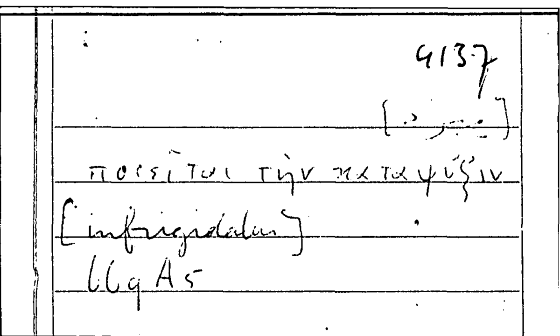 4137
[يبرد]
ποιεῖται τὴν καταψύξιν
[infrigidatur]
669 A5